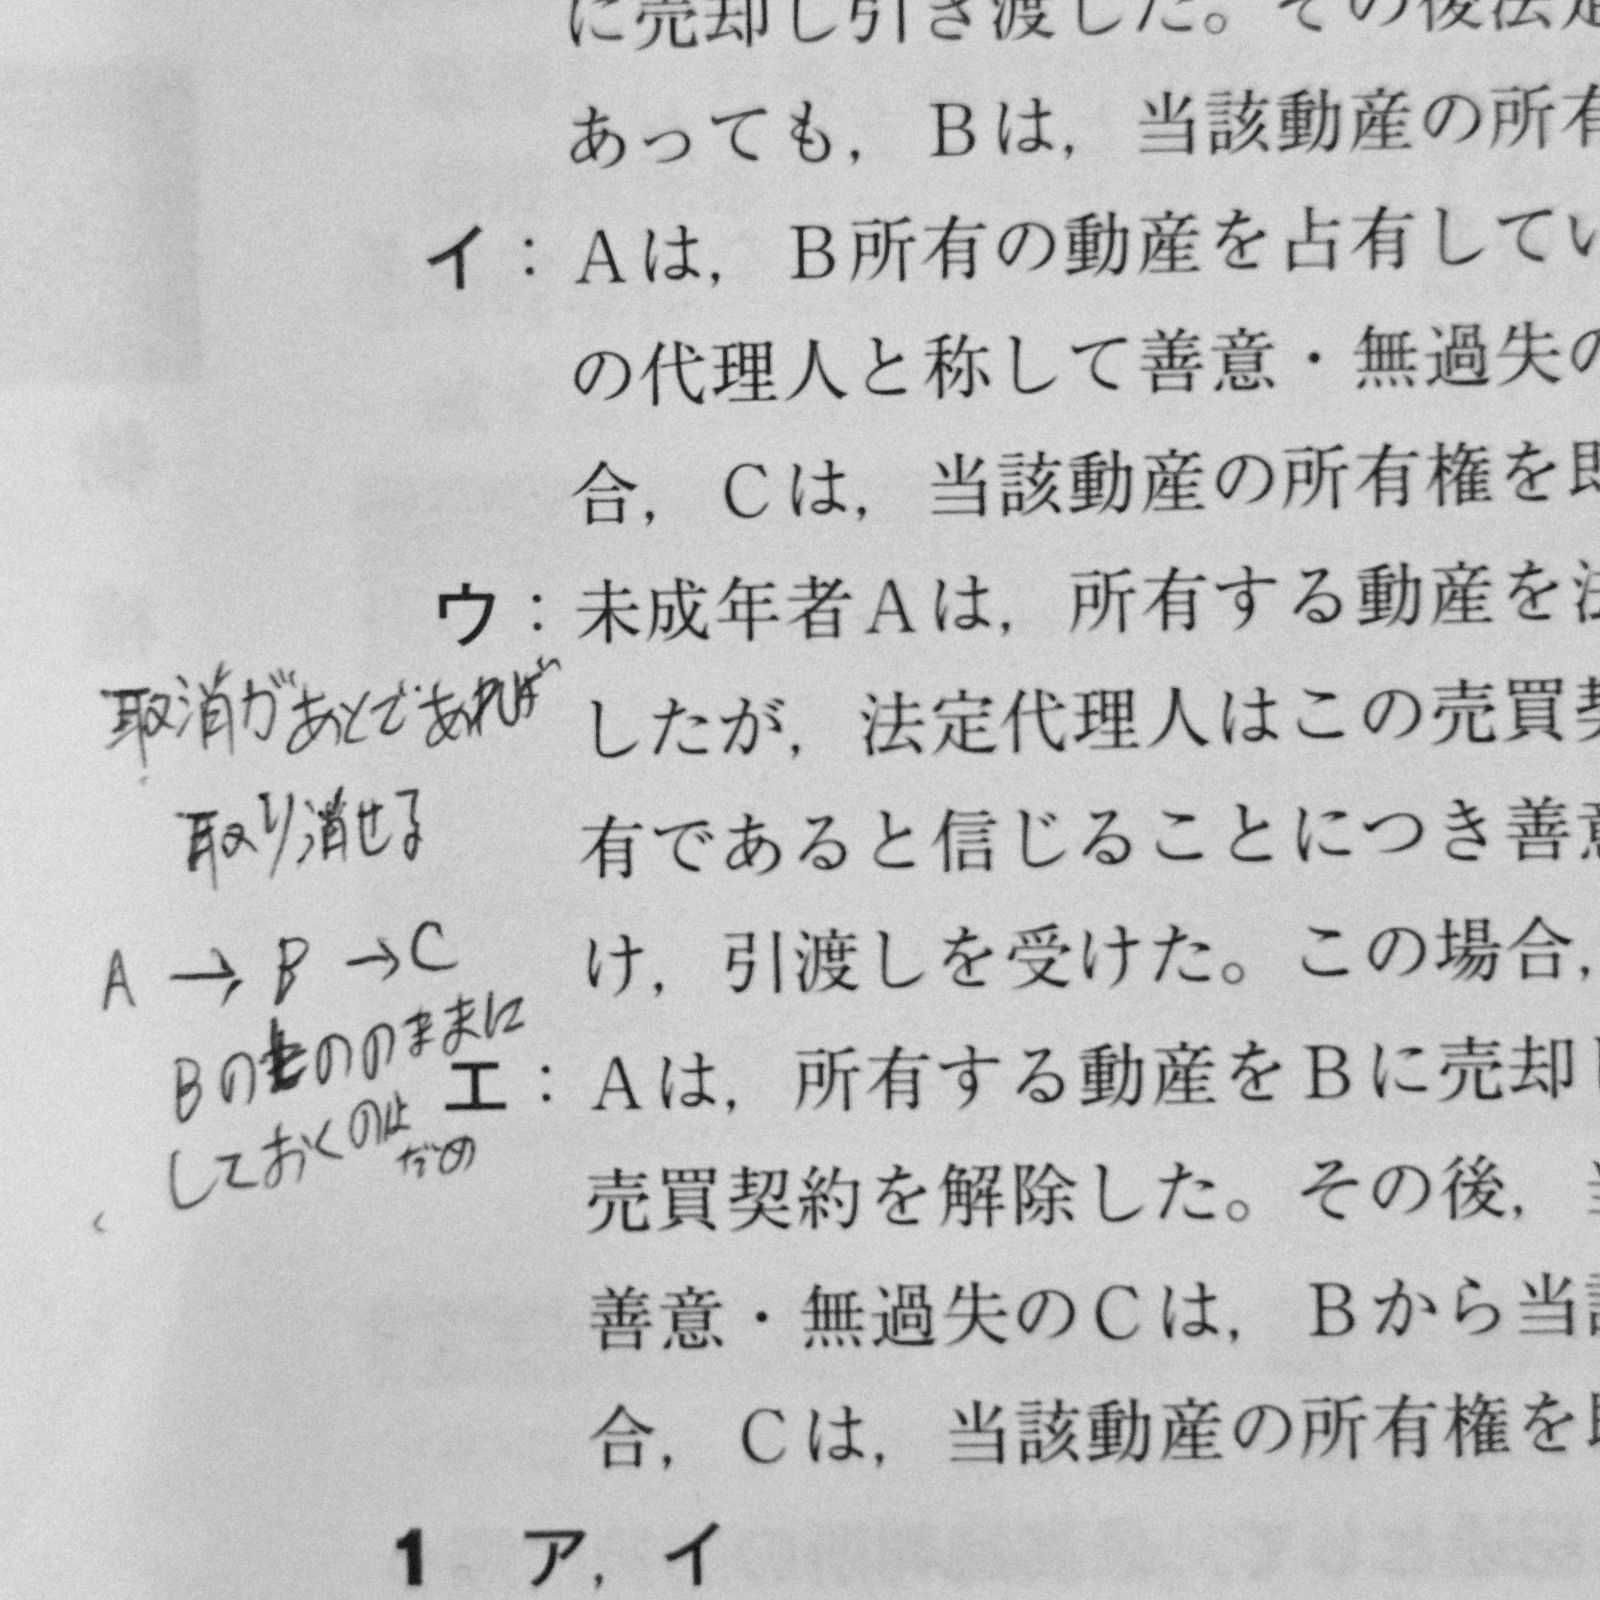 に売却し引き渡した。その後法定
あっても，Bは，当該動産の所有
イ：Aは，B所有の動産を占有してい
の代理人と称して善意・無過失の
合，Cは，当該動産の所有権を即
ウ：未成年者Aは，所有する動産を法
取消があとであれば
したが，法定代理人はこの売買契
取り消せる
有であると信じることにつき善意
A → B → C
け，引渡しを受けた。この場合，
Bのもののままに
エ：Aは，所有する動産をBに売却し
しておくのは
だめ
売買契約を解除した。その後，当
善意・無過失のCは，Bから当該
合，Cは，当該動産の所有権を即
1 ア，イ